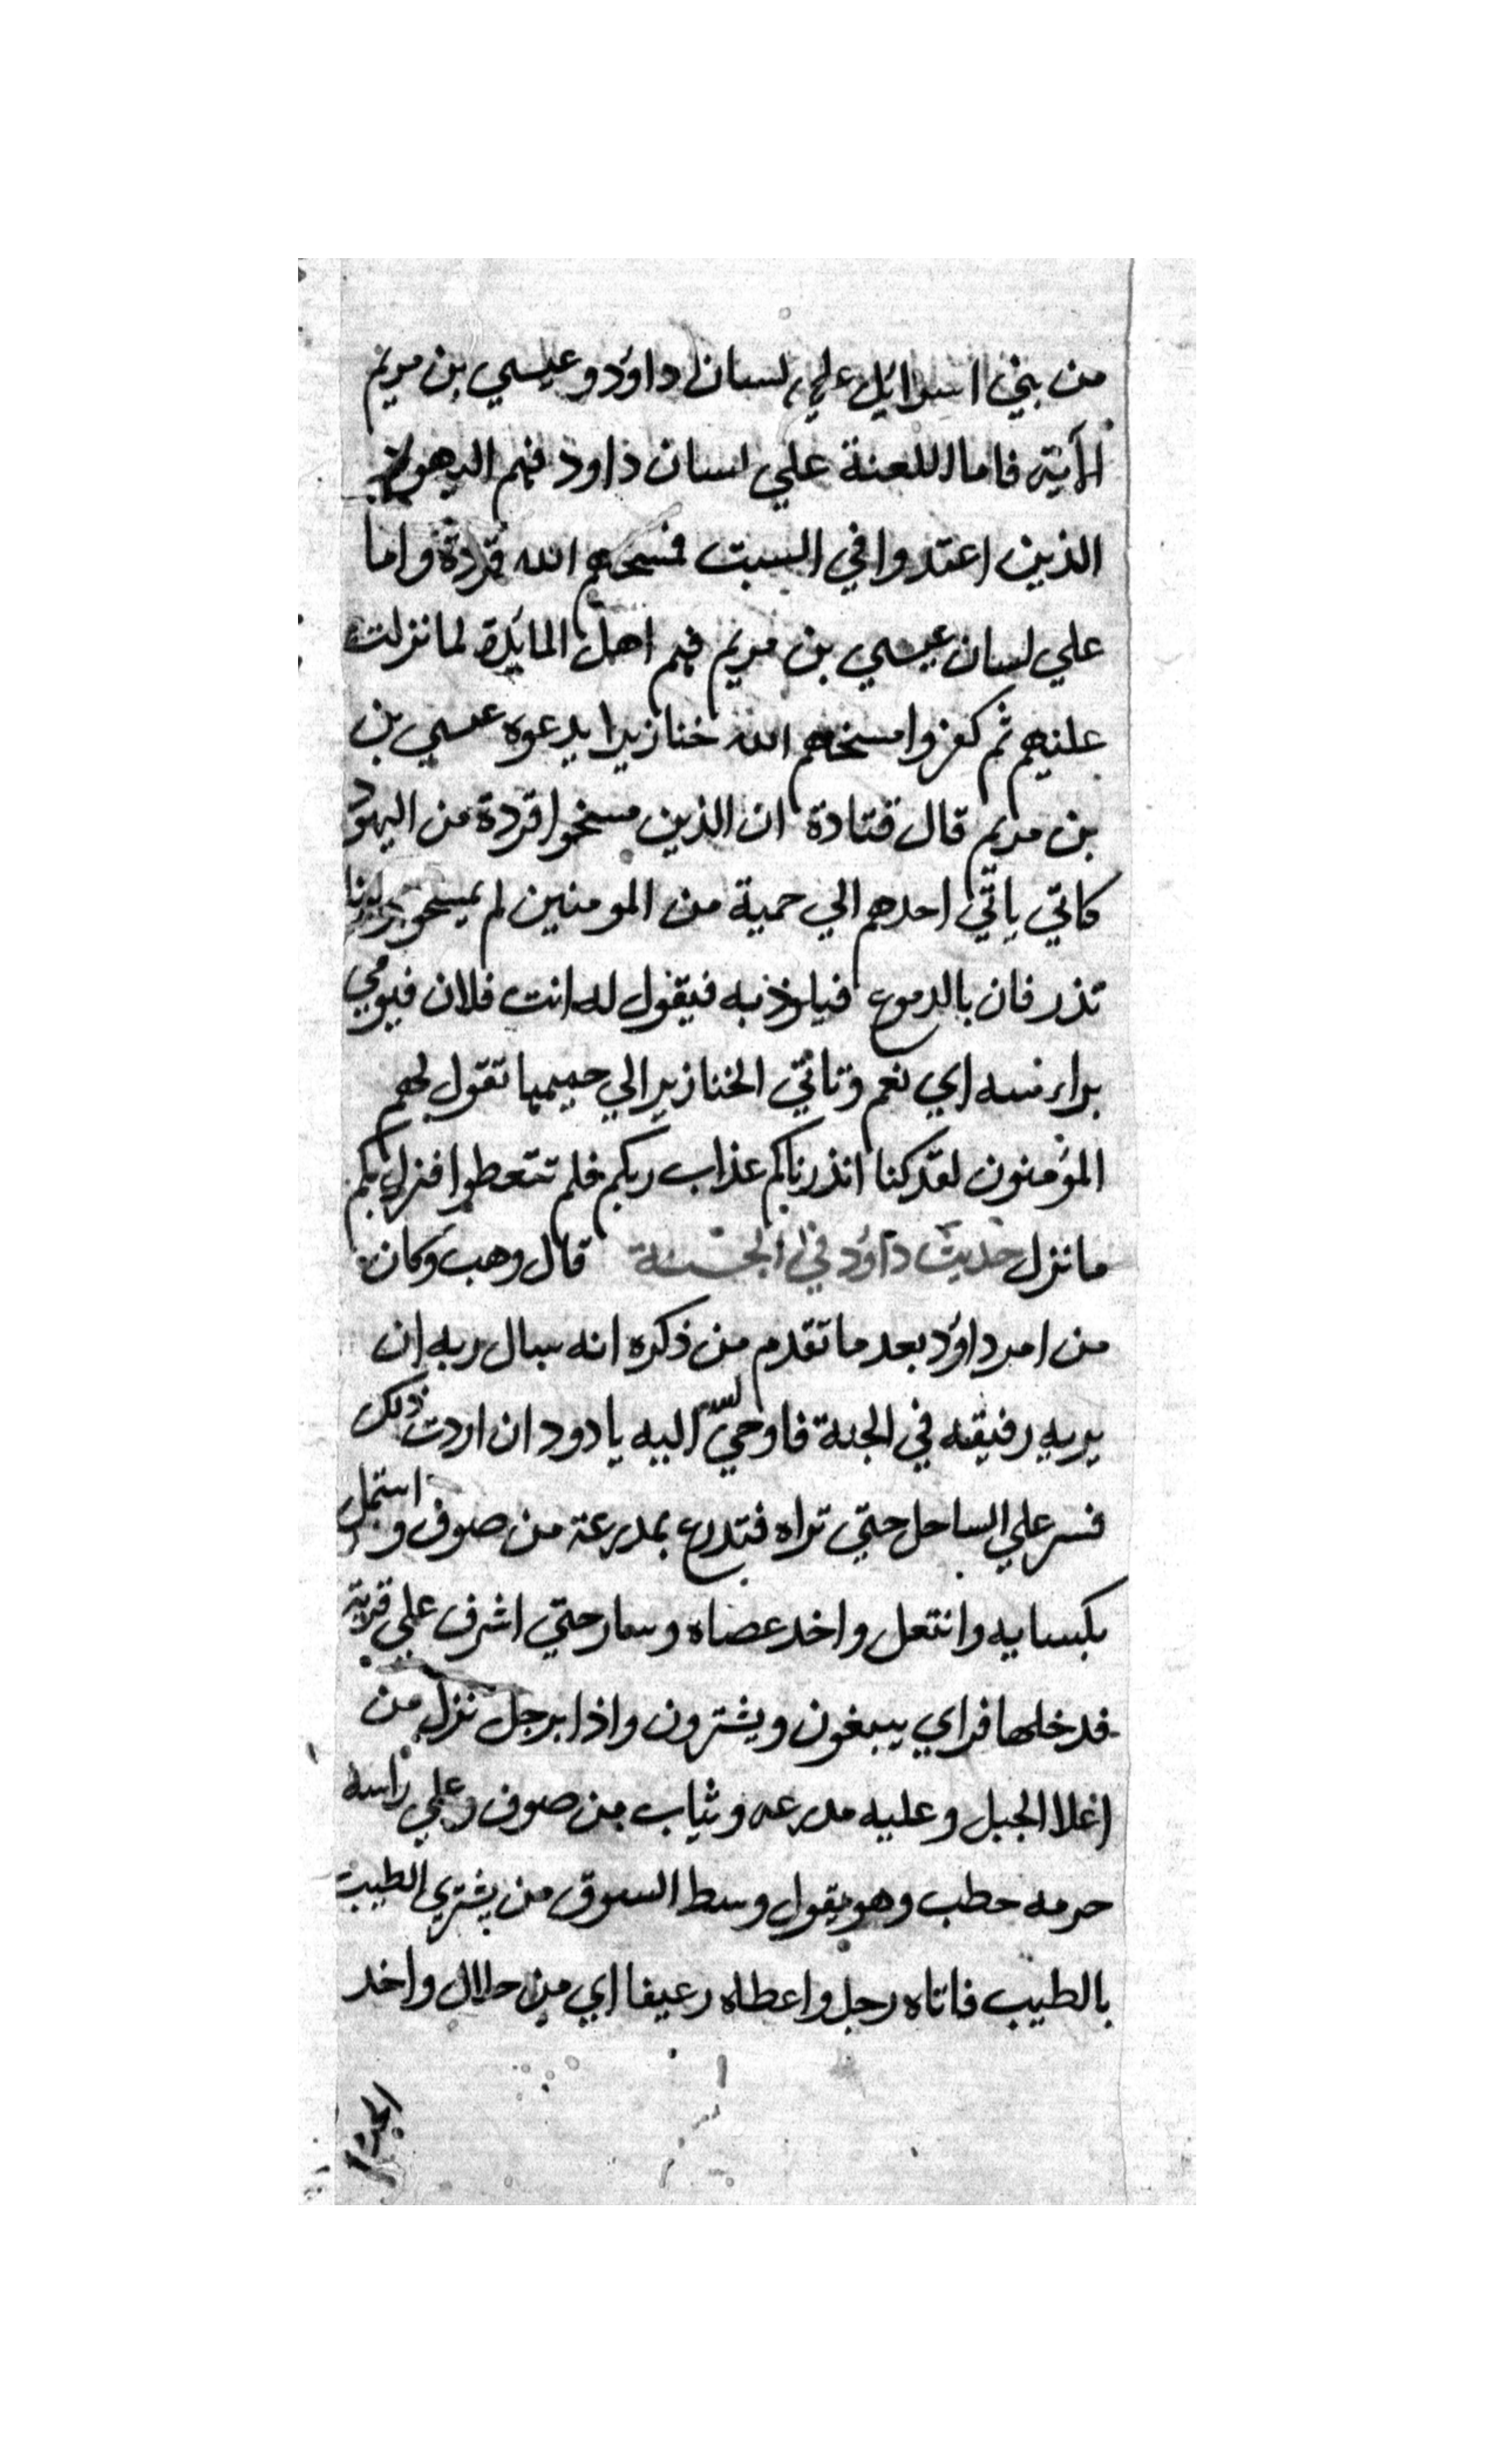 من بني اسرائيل علي لسان داؤد وعيسي بن مريم
الأية فاما اللعنة علي لسان داود فهم اليهود
الذين اعتدوا في السبت فمسخهم الله قردة واما
علي لسان عيسي بن مريم فهم اهل المائدة لما نزلت
عليهم ثم كفروا مسخهم الله خنازيرا بدعوه عيسي بن
بن مريم قال قتادة ان الذين مسخوا قردة من اليهود
كاتي ياتي احدهم الي حمية من المومنين لم يمسخو
تذرفان بالدموع فيلوذ به فيقول له انت فلان فيومي
براء سه اي نعم وتاتي الخنازير الي حميمها تقول لهم
المؤمنون لقد كنا انذرناكم عذاب ربكم فلم تتعطوا فنزل بكم
ما نزل حديث داؤد في الجنة قال وهب وكان
من امر داؤد بعد ما تقدم من ذكره انه سال ربه ان
يريه رفيقه في الجنة فاوحي الله اليه يا دود ان اردت ذلك
فسر علي الساحل حتي تراه فتدرع بمدرعة من صوف واشتمل
بكسايه وانتعل واخد عصاه وسار حتي اشرف علي قرية
فدخلها فراي يبيعون ويشترون واذا برجل نزل من
اعلا الجبل وعليه مدرعه وثياب من صوف وعلي راسه
حرمه حطب وهو يقول وسط السوق من يشتري الطيب
بالطيب فاتاه رجل واعطاه رعيفا اي من حلال واخد